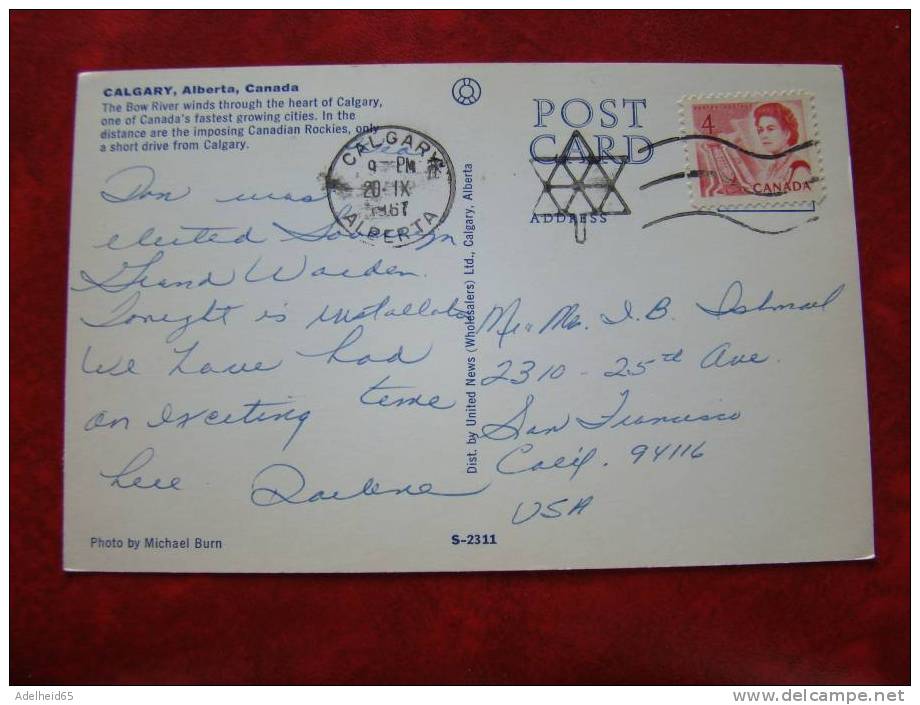 CALGARY, Alberta, Canada
The Bow River winds through the heart of Calgary,
one of Canada's fastest growing cities. In the
distance are the imposing Canadian Rockies, only
a short drive from Calgary.
CALGARY
9 PM
20 IX
1967
ALBERTA
Don was
elected Sovereign
Grand Warden.
Tonight is
We have had
an exciting time
here Darlene
Photo by Michael Burn
S-2311
Dist. by United News (Wholesalers) Ltd., Calgary, Alberta
POST
CARD
ADDRESS
4
CANADA
Mr. Mrs. I. B. Ishmael
2310 - 25th Ave.
San Francisco
Calif. 94116
USA
Adelheid65
www.delcampe.net